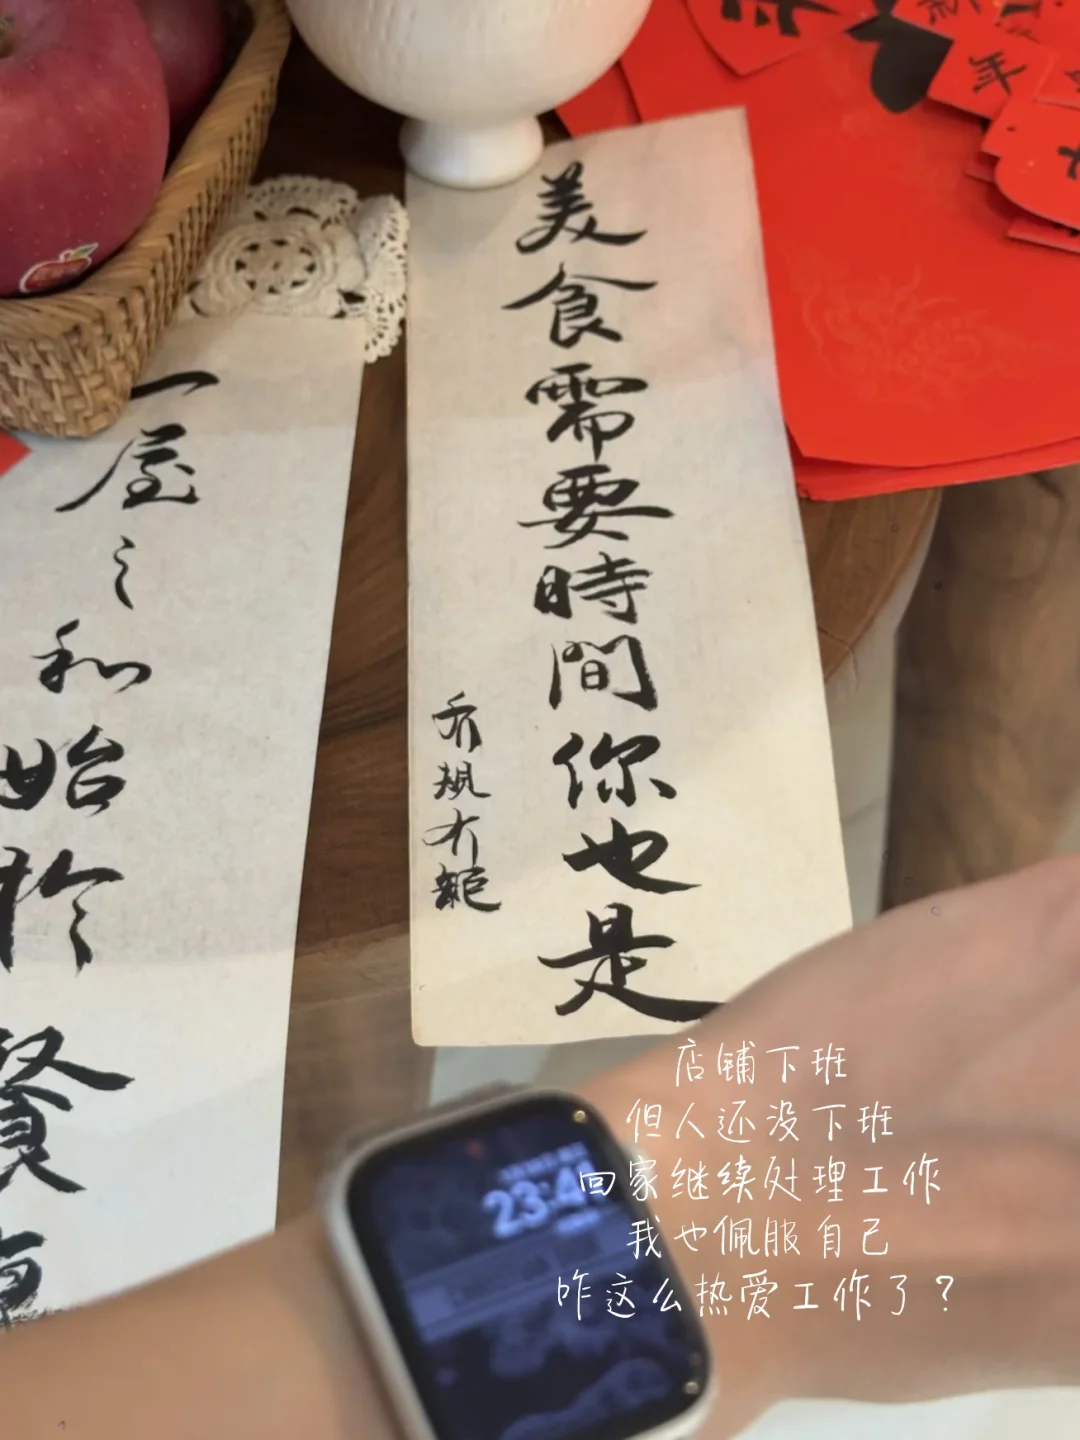 美食需要時間你也是
乔規冇範
一屋之和始於餐桌
年
店铺下班
但人还没下班
回家继续处理工作
我也佩服自己
咋这么热爱工作了？